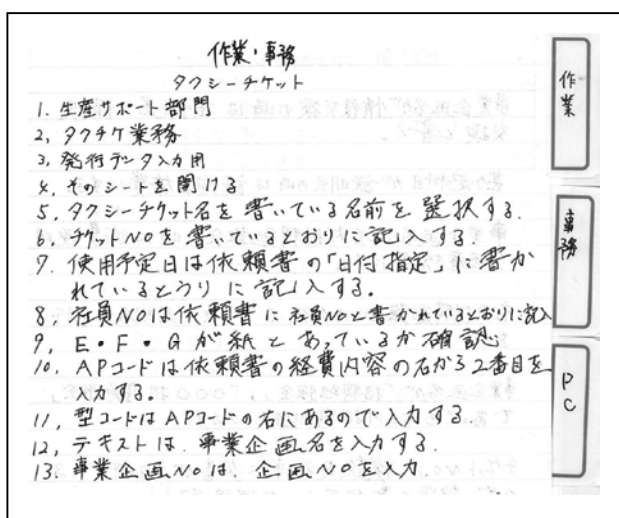 作業・事務
タクシーチケット
1. 生産サポート部門
2, タクチケ業務
3, 発行データ入力用
4, そのシートを開ける
5, タクシーチケット名を書いている名前を選択する.
6, チケットNOを書いているとおりに記入する.
7, 使用予定日は依頼書の「日付指定」に書か
れているとうりに記入する.
8, 社員NOは依頼書に社員NOと書かれているとおりに記入
9, E・F・Gが紙とあっているか確認
10, APコードは依頼書の経費内容の右から2番目を
入力する.
11, 型コードはAPコードの右にあるので入力する.
12, テキストは、事業企画名を入力する.
13, 事業企画NOは、企画NOを入力
作業
事務
PC